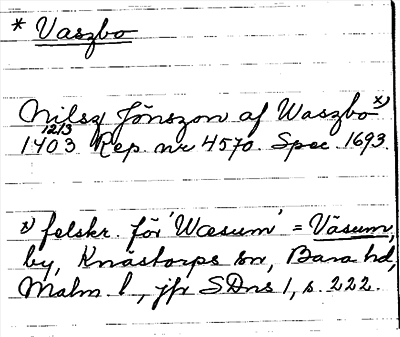 * Vaszbo
Nilsz Jönszon af Waszbo x)
1403 12/3 Rep. nr 4570. Spec. 1693.
x) felskr. för 'Wæsum' = Väsum,
by, Knästorps sn, Bara hd,
Malm. l, jfr SDns 1, s. 222.